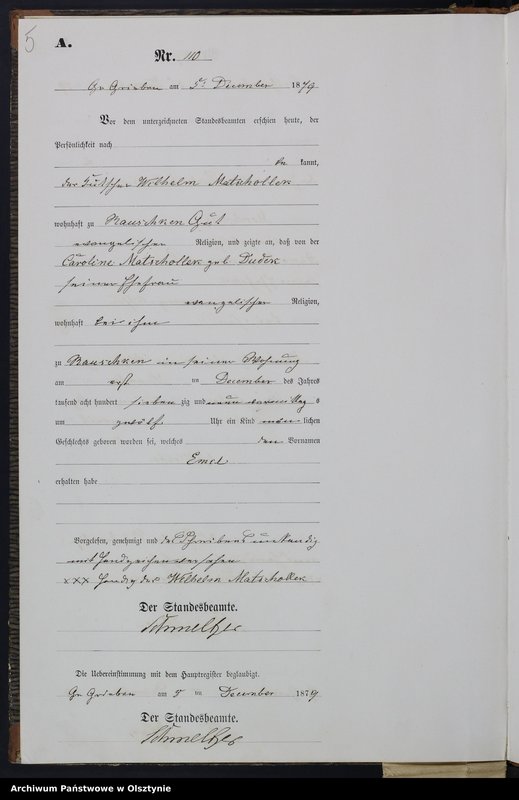 5
A.
Nr. 110
Gr Grieben am 5t December 1879
Vor dem unterzeichneten Standesbeamten erschien heute, der
Persönlichkeit nach
be kannt,
der Kutscher Wilhelm Matschollek
wohnhaft zu Rauschken Gut
evangelischer Religion, und zeigte an, daß von der
Caroline Matschollek geb Dudek
seiner Ehefrau
evangelischer Religion,
wohnhaft bei ihm
zu Rauschken in seiner Wohnung
am ten December des Jahres
tausend acht hundert sieben zig und neun vormittag s
um zwölf Uhr ein Kind män lichen
Geschlechts geboren worden sei, welches den Vornamen
Emil
erhalten habe
Vorgelesen, genehmigt und des Schreibens unkundig
mit Handzeichen versehen
xxx Handz des Wilhelm Matschollek
Der Standesbeamte.
Schmeltzer
Die Uebereinstimmung mit dem Hauptregister beglaubigt.
Gr Grieben am 5 ten December 1879
Der Standesbeamte.
Schmeltzer
Archiwum Państwowe w Olsztynie